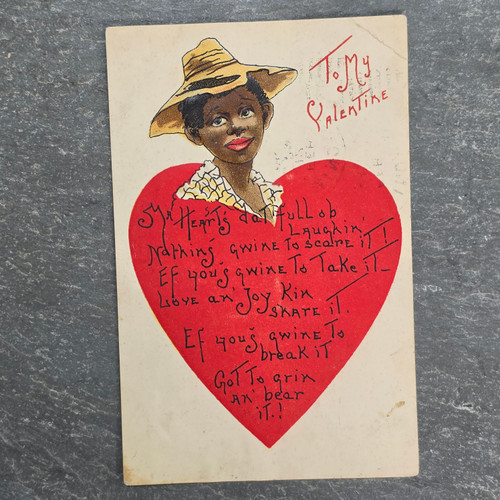 To My
Valentine
Ma Heart's dat full ob
Laughin'
Nothing gwine to scare it!
Ef yous gwine to take it—
Love an' Joy kin
share it.
Ef yous gwine to
break it
Got to grin
an' bear
it!